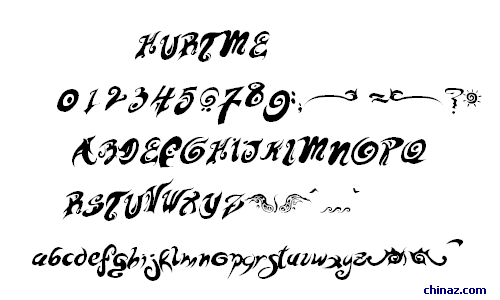 HURTME
0123456789:; ~ ?
ABDEFGHIJKLMNOPQ
RSTUVWXYZ
abcdefghijklmnopqrstuvwxyz
chinaz.com